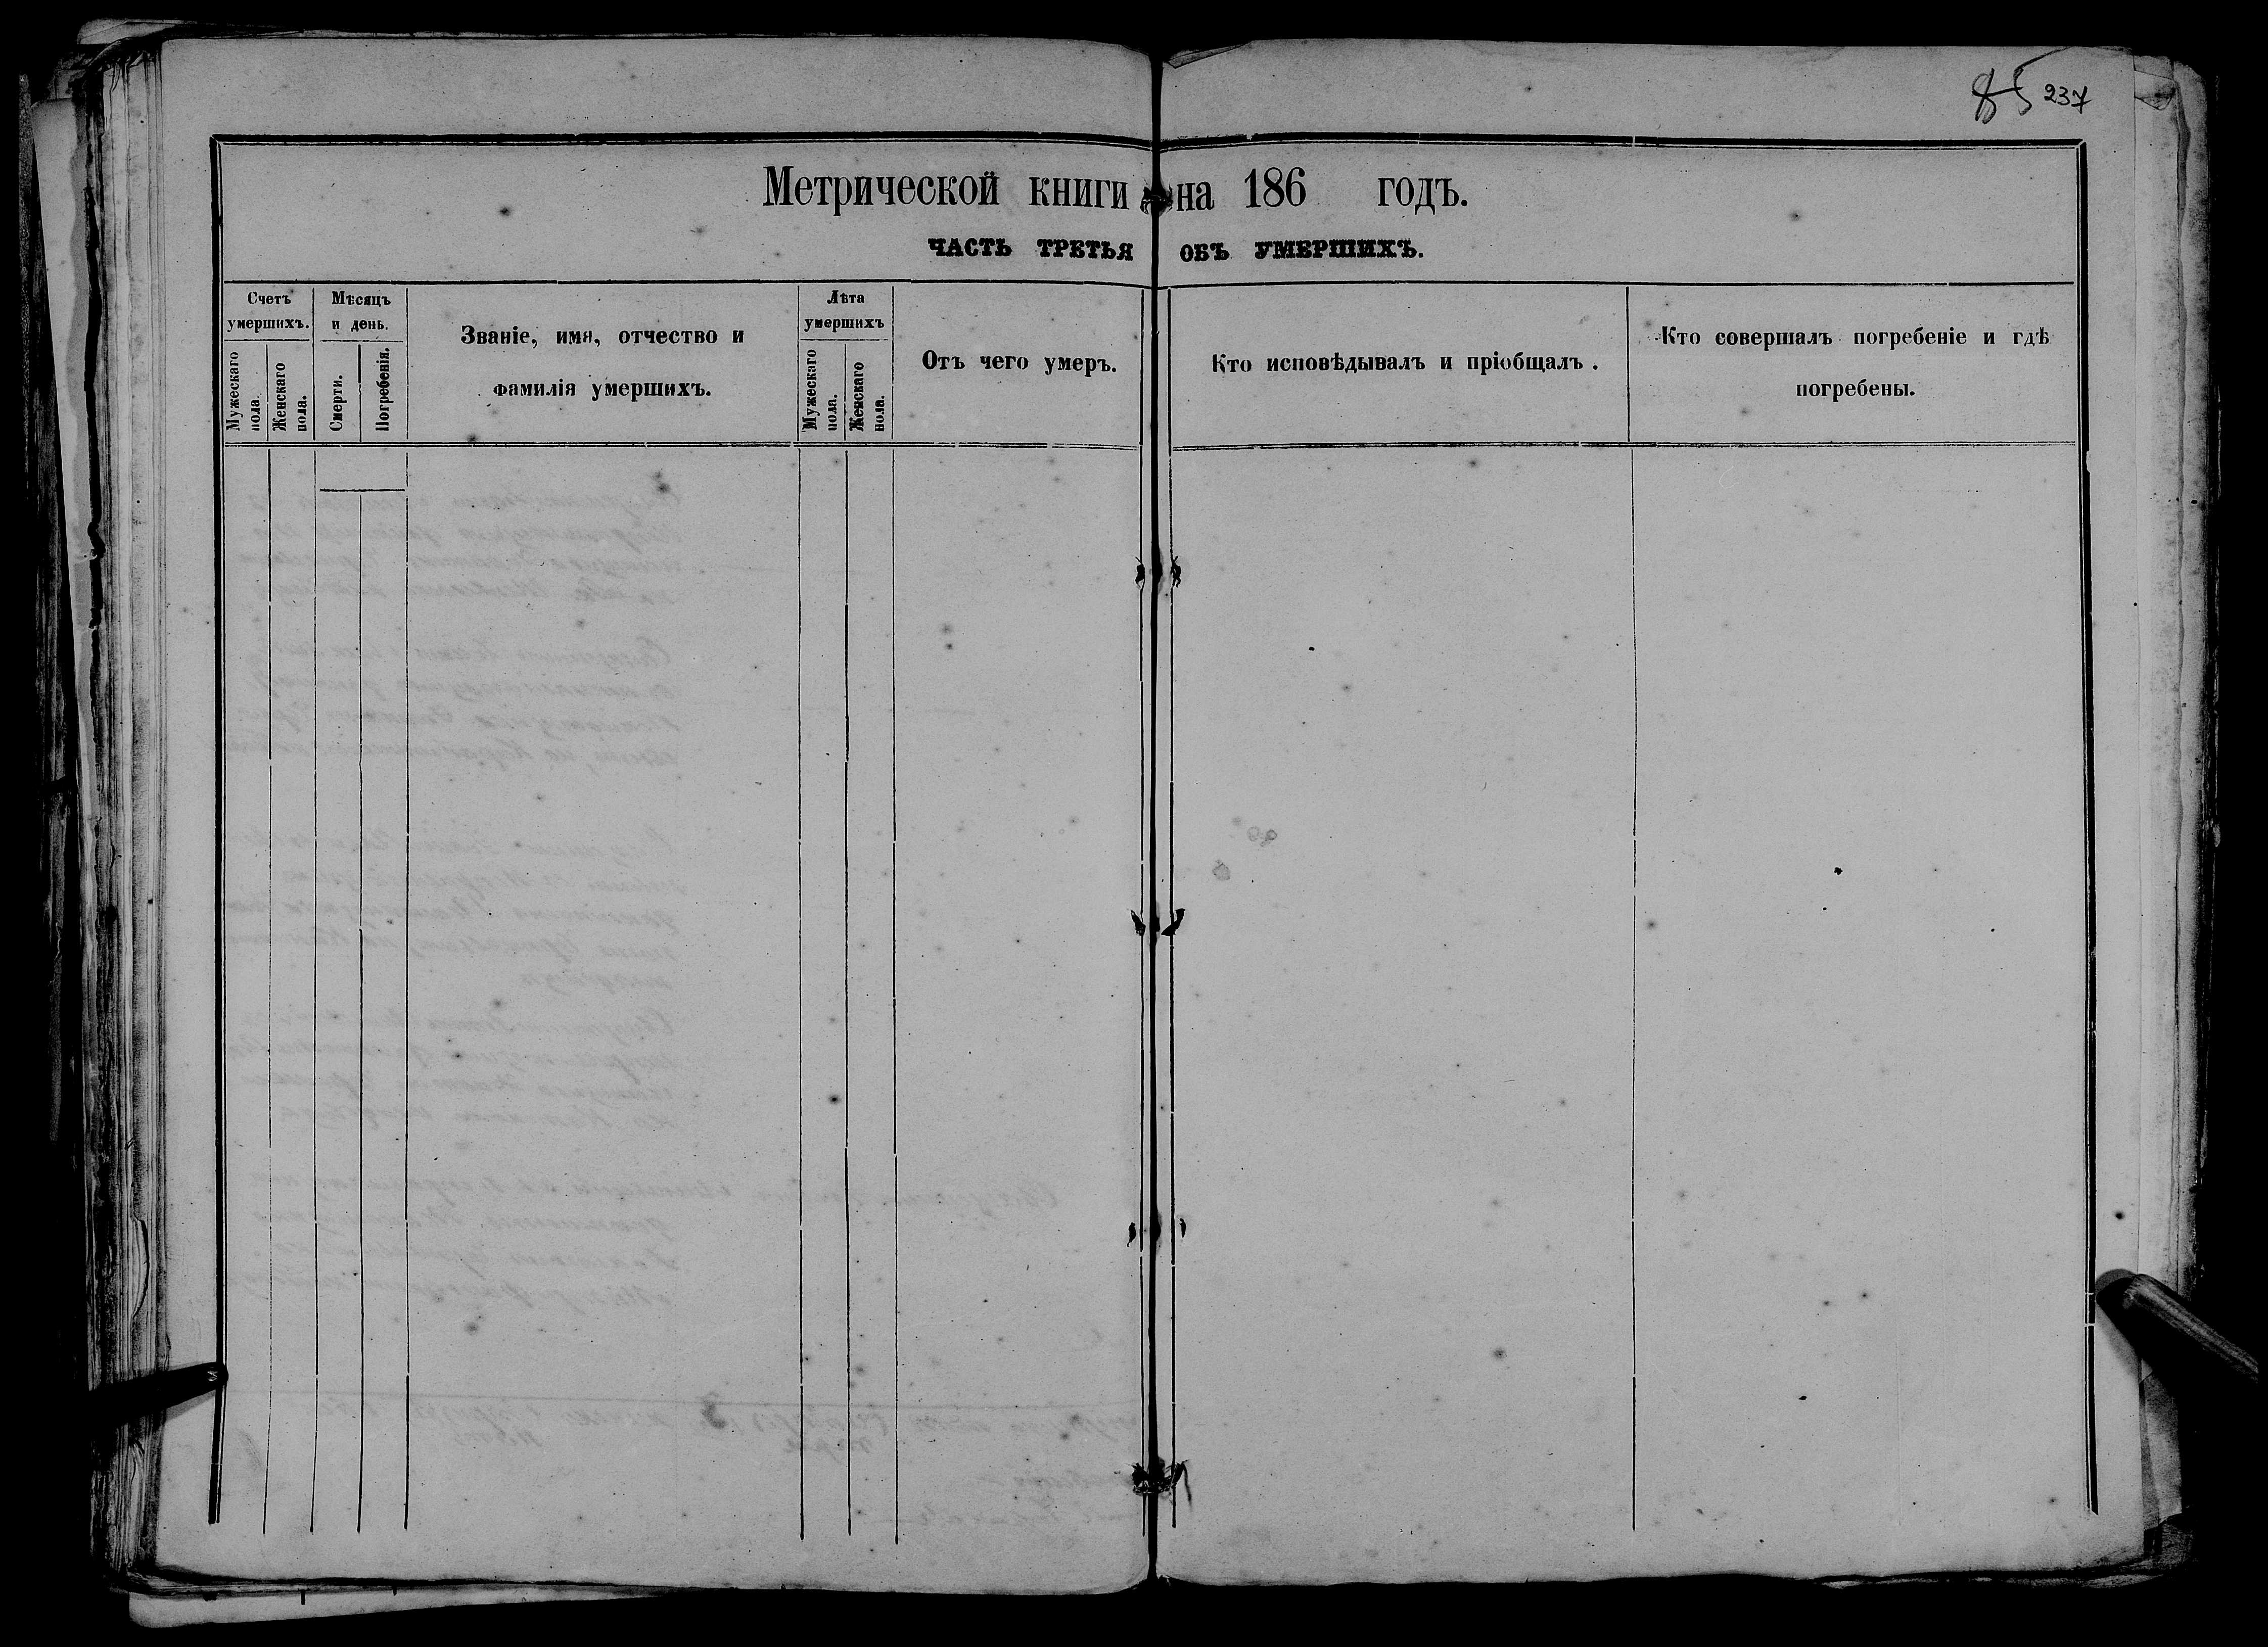 85 237
Метрической книги на 186 годъ.
ЧАСТЬ ТРЕТЬЯ ОБЪ УМЕРШИХЪ.
Счетъ умершихъ.
Мужескаго пола
Женскаго пола.
Мѣсяцъ и день.
Смерти.
Погребенія.
Званіе, имя, отчество и
фамилія умершихъ.
Лѣта умершихъ
Мужескаго пола.
Женскаго пола.
Отъ чего умеръ.
Кто исповѣдывалъ и пріобщалъ.
Кто совершалъ погребеніе и гдѣ
погребены.